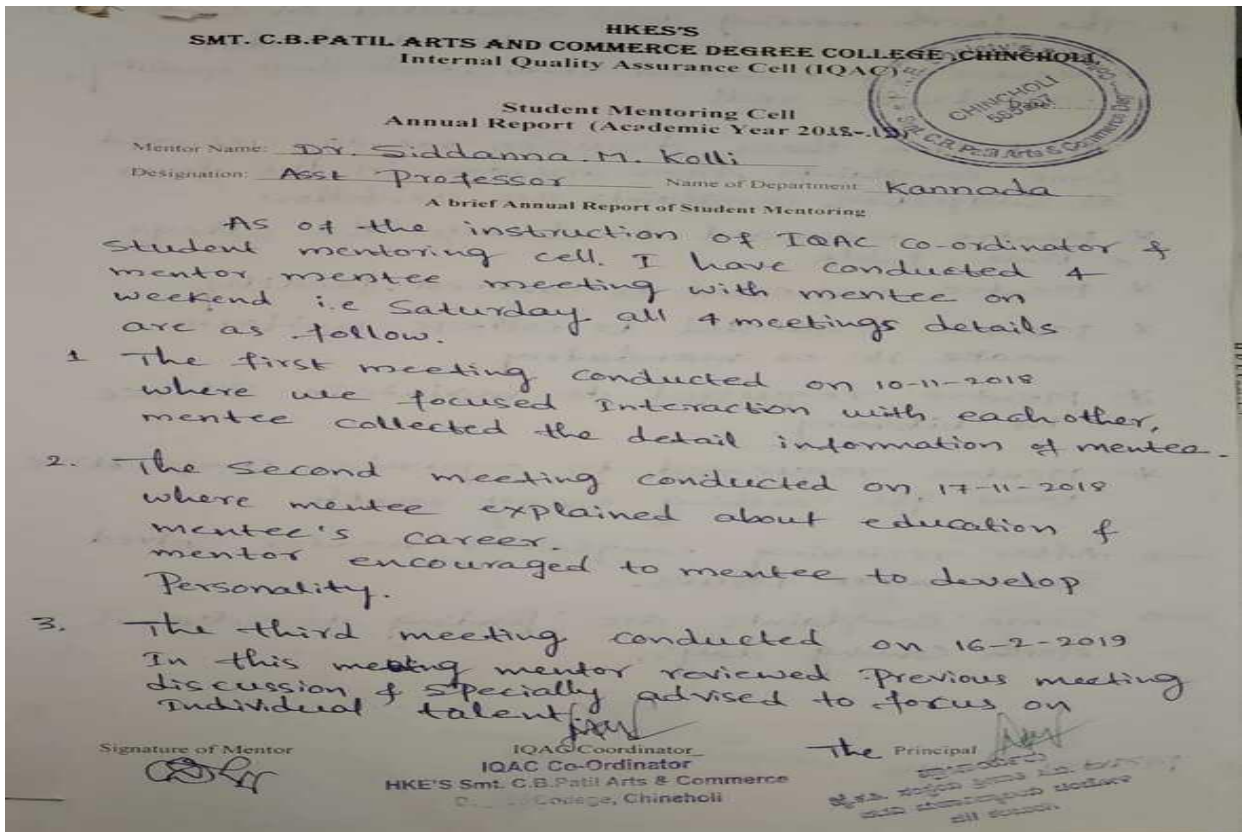 HKES'S
SMT. C.B.PATIL ARTS AND COMMERCE DEGREE COLLEGE, CHINCHOLI,
Internal Quality Assurance Cell (IQAC)
CHINCHOLI
Smt. C.B. Patil Arts & Commerce
Student Mentoring Cell
Annual Report (Academic Year 2018-19)
Mentor Name: Dr. Siddanna. M. Kolli
Designation: Asst Professor Name of Department Kannada
A brief Annual Report of Student Mentoring
As of the instruction of IQAC co-ordinator &
student mentoring cell. I have conducted 4
mentor mentee meeting with mentee on
weekend i.e Saturday all 4 meetings details
are as follow.
1 The first meeting conducted on 10-11-2018
where we focused Interaction with each other,
mentee collected the detail information of mentee.
2. The second meeting conducted on 17-11-2018
where mentee explained about education &
mentee's career.
mentor encouraged to mentee to develop
Personality.
3. The third meeting conducted on 16-2-2019
In this meeting mentor reviewed Previous meeting
discussion, & specially advised to focus on
Individual talent.
Signature of Mentor IQAC Coordinator The Principal
IQAC Co-Ordinator
HKE'S Smt. C.B.Patil Arts & Commerce
College, Chincholi